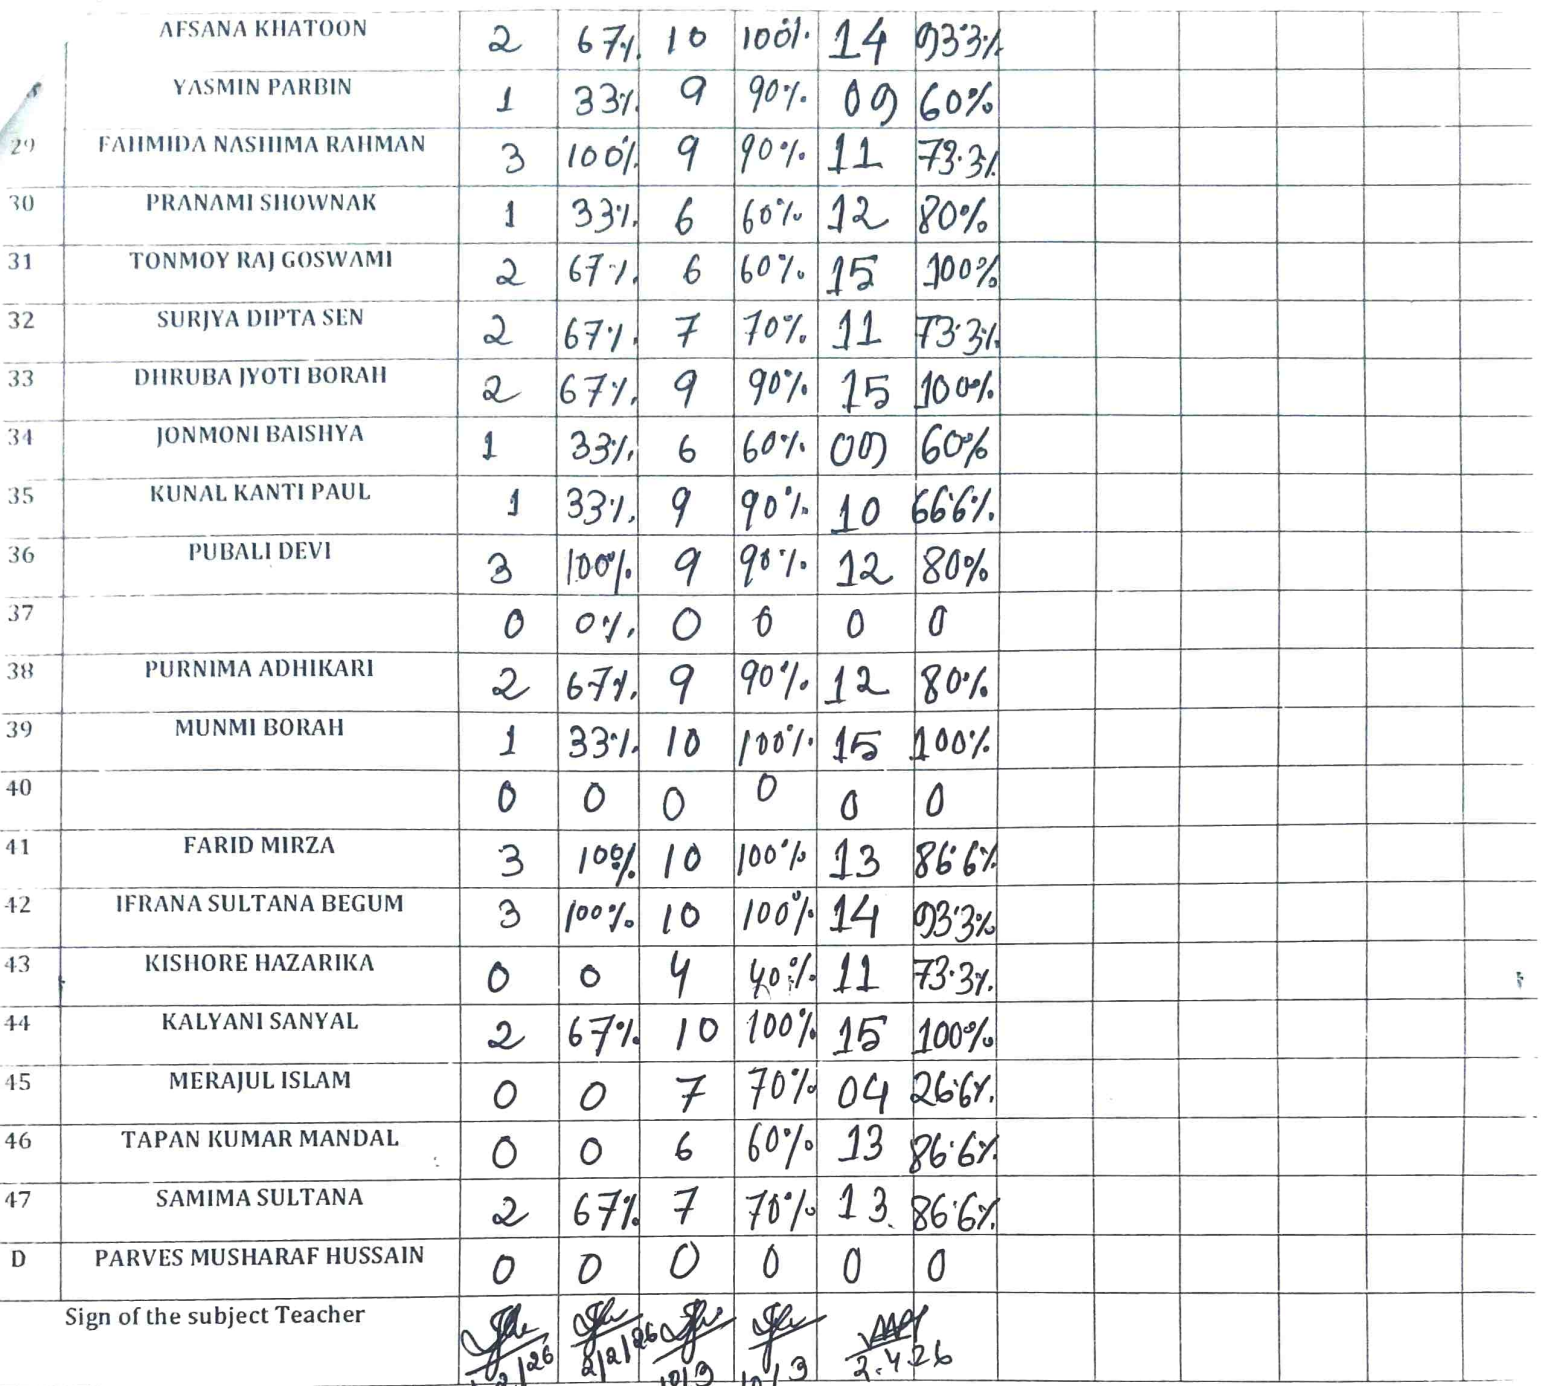 AFSANA KHATOON 2 67% 10 100% 14 93.3%
YASMIN PARBIN 1 33% 9 90% 09 60%
29 FAHMIDA NASHIMA RAHMAN 3 100% 9 90% 11 73.3%
30 PRANAMI SHOWNAK 1 33% 6 60% 12 80%
31 TONMOY RAJ GOSWAMI 2 67% 6 60% 15 100%
32 SURJYA DIPTA SEN 2 67% 7 70% 11 73.3%
33 DHRUBA JYOTI BORAH 2 67% 9 90% 15 100%
34 JONMONI BAISHYA 1 33% 6 60% 09 60%
35 KUNAL KANTI PAUL 1 33% 9 90% 10 66.6%
36 PUBALI DEVI 3 100% 9 90% 12 80%
37 0 0% 0 0 0 0
38 PURNIMA ADHIKARI 2 67% 9 90% 12 80%
39 MUNMI BORAH 1 33% 10 100% 15 100%
40 0 0 0 0 0 0
41 FARID MIRZA 3 100% 10 100% 13 86.6%
42 IFRANA SULTANA BEGUM 3 100% 10 100% 14 93.3%
43 KISHORE HAZARIKA 0 0 4 40% 11 73.3%
44 KALYANI SANYAL 2 67% 10 100% 15 100%
45 MERAJUL ISLAM 0 0 7 70% 04 26.6%
46 TAPAN KUMAR MANDAL 0 0 6 60% 13 86.6%
47 SAMIMA SULTANA 2 67% 7 70% 13 86.6%
D PARVES MUSHARAF HUSSAIN 0 0 0 0 0 0
Sign of the subject Teacher
2/2/26 10/3 10/3 2.4.26